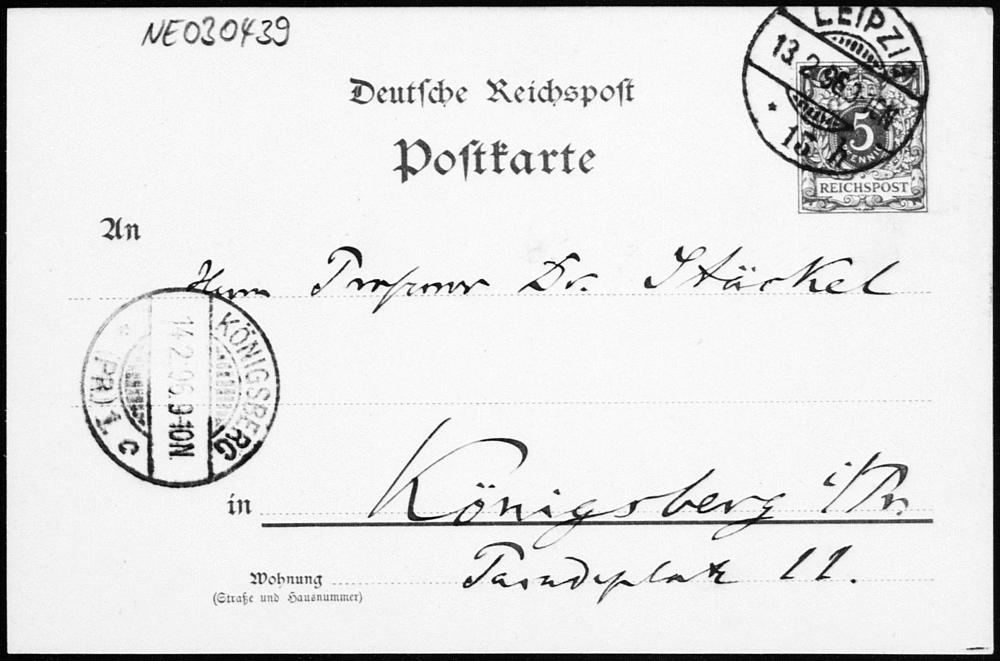 NE030439
LEIPZIG
13.2.96.9-10N
* 13 *
5
PFENNIG
REICHSPOST
Deutsche Reichspost
Postkarte
An
Herrn Professor Dr. Stäckel
KÖNIGSBERG
14.2.96.9-10N.
* (PR.) 1 c
in Königsberg i/Pr.
Wohnung Paradeplatz 11.
(Straße und Hausnummer)